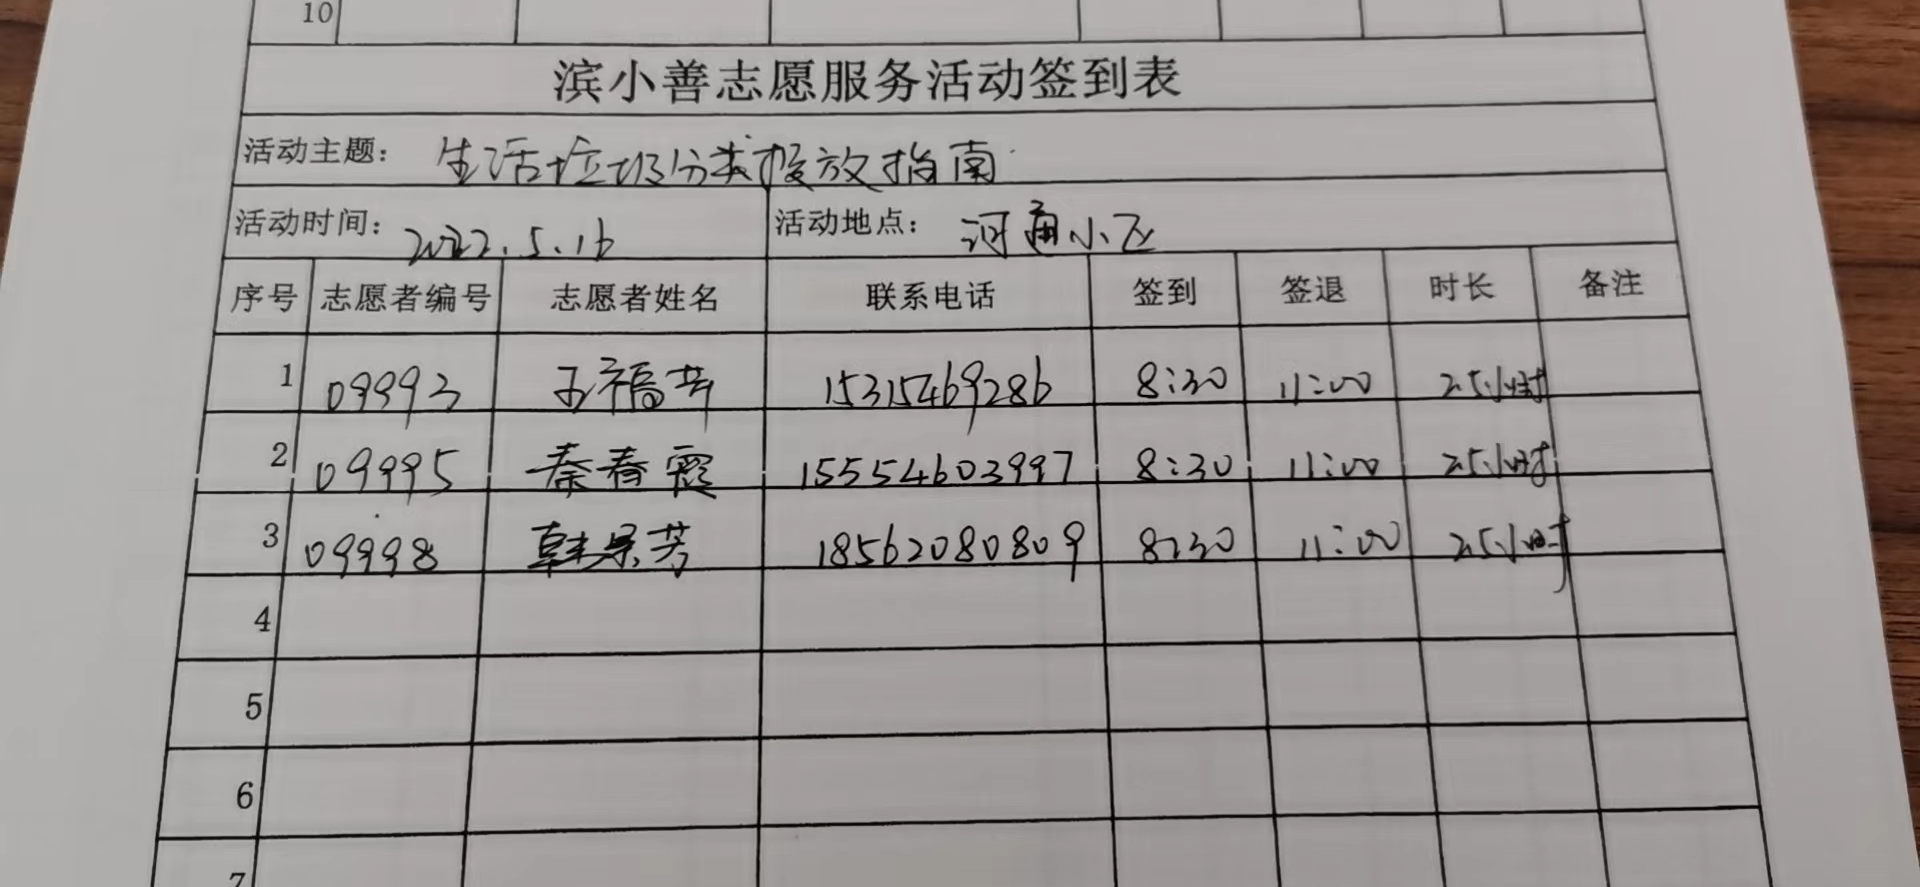 10
滨小善志愿服务活动签到表
活动主题： 生活垃圾分类投放指南
活动时间： 2022.5.16 活动地点： 河通小区
序号 志愿者编号 志愿者姓名 联系电话 签到 签退 时长 备注
1 09993 王福芹 15315469286 8:30 11:00 2.5小时
2 09995 秦春霞 15554603997 8:30 11:00 2.5小时
3 09998 韩景芳 18562080809 8:30 11:00 2.5小时
4
5
6
7